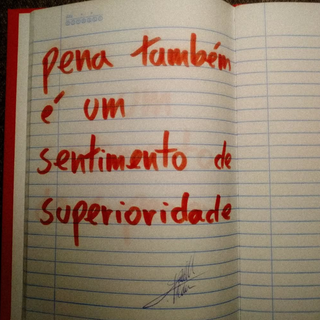 pena também
é um
sentimento de
superioridade